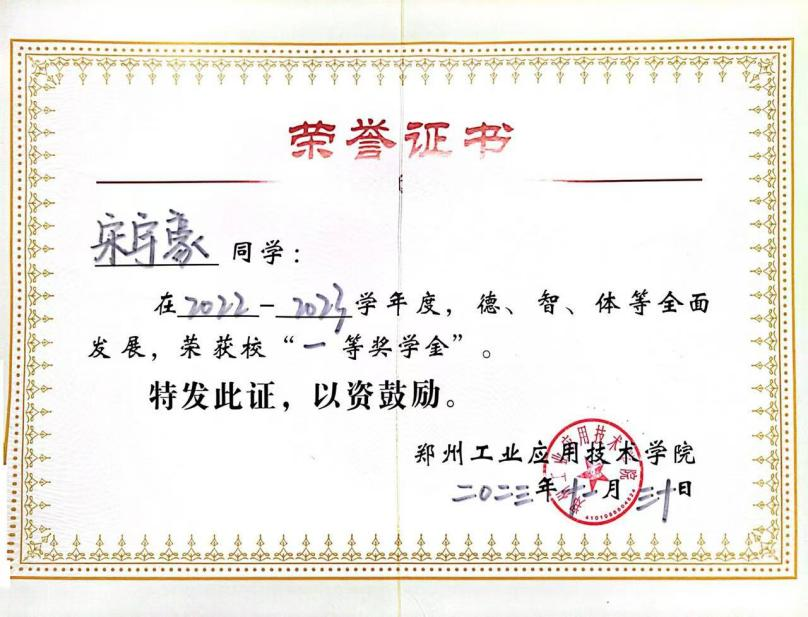 荣誉证书
宋宇豪 同学：
在2022-2023学年度，德、智、体等全面
发展，荣获校“一等奖学金”。
特发此证，以资鼓励。
郑州工业应用技术学院
二〇二三年十二月三十日
郑州工业应用技术学院